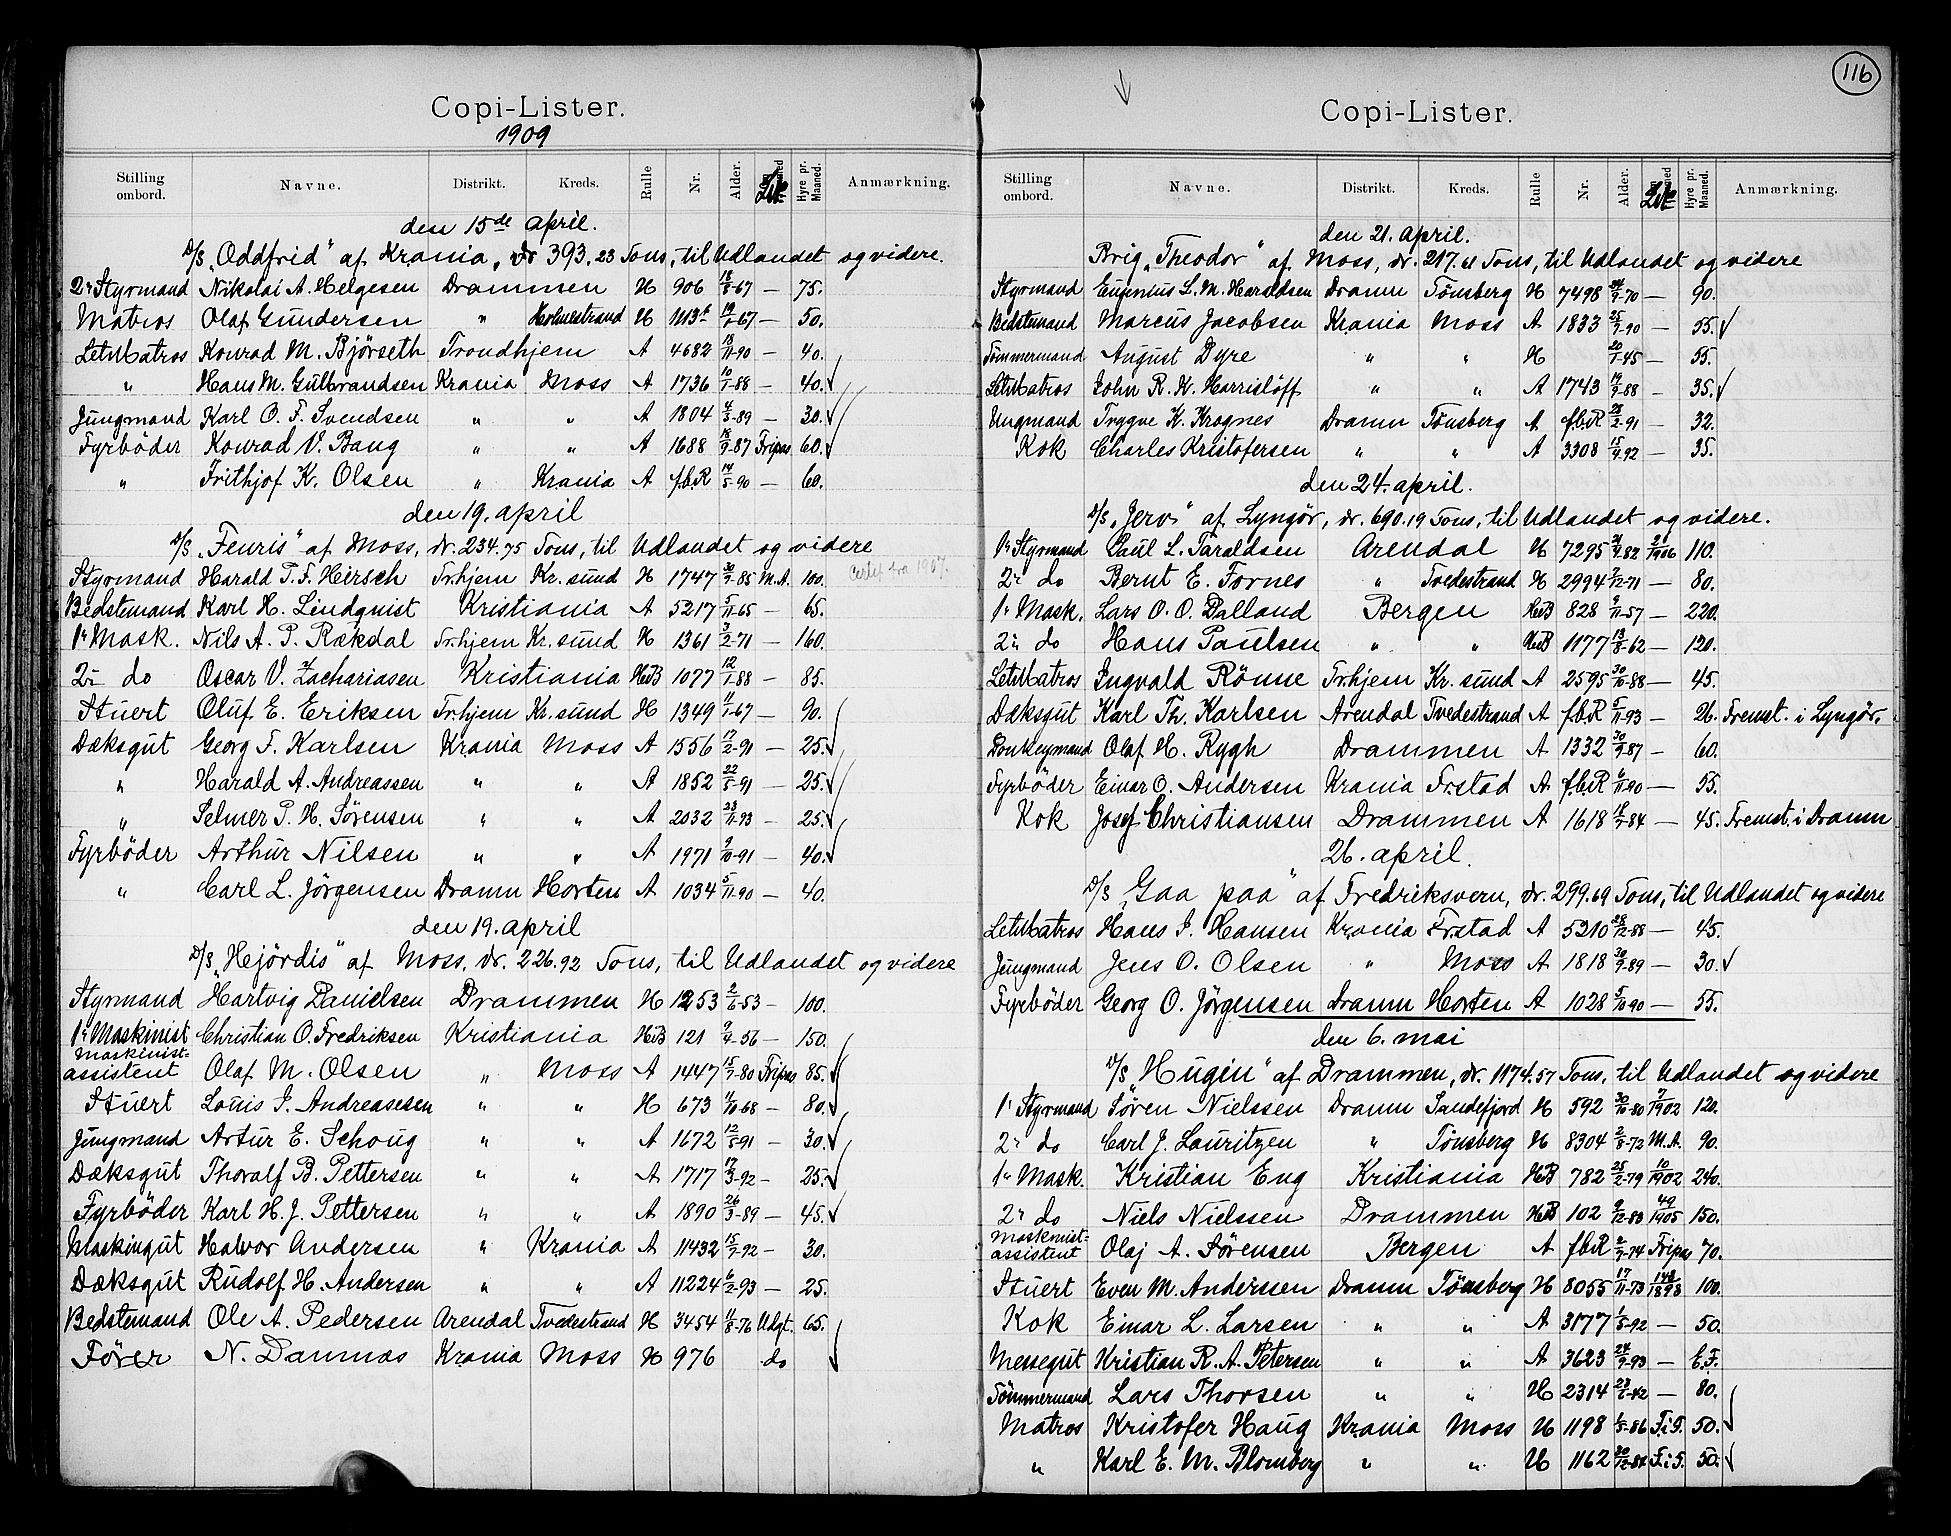 Copi-Lister.
1909
Stilling ombord. Navne. Distrikt. Kreds. Rulle Nr. Alder. Hyre pr. Maaned. Anmærkning.
den 15de april.
D/S „Oddfrid" af Krania, dr 393.23 Tons, til Udlandet og videre.
2n Styrmand Nikolai A. Helgesen Drammen H 906 18/8-67 — 75.
Matros Olaf Gundersen " Holmestrand H 1113 — 50.
LetMatros Konrad M. Bjørseth Trondhjem A 4682 18/11-90 — 40.
" Hans M. Gulbrandsen Krania Moss A 1736 10/1-88 — 40.
Jungmand Karl O. F. Svendsen " " A 1804 4/3-89 — 30.
Fyrbøder Konrad V. Bang " " A 1688 18/9-87 Fripas 60.
" Frithjof K. Olsen " Krania A f.b.R 14/5-90 — 60.
den 19. april
D/S „Fenris" af Moss, dr. 234.75 Tons, til Udlandet og videre
Styrmand Harald T. F. Hirsch Tr.hjem Kr. sund H 1747 30/9-85 M.A. 100. 1907.
Bedstemand Karl H. Lindqvist Kristiania A 5217 5/11-65 — 65.
1n Mask. Nils A. P. Rækdal Tr.hjem Kr. sund H 1361 3/2-71 — 160.
2n do Oscar V. Zachariasen Kristiania HuB 1077 12/1-88 — 85.
Stuert Oluf E. Eriksen Tr.hjem Kr. sund H 1349 11/1-67 — 90.
Dæksgut Georg F. Karlsen Krania Moss A 1556 17/2-91 — 25.
" Harald A. Andreassen " " A 1852 22/5-91 — 25.
" Selmer P. H. Sørensen " " A 2032 23/11-93 — 25.
Fyrbøder Arthur Nilsen " " A 1971 9/10-91 — 40.
" Carl L. Jørgensen Dramn Horten A 1034 5/11-90 — 40.
den 19. april
D/S „Hejördis" af Moss. dr. 226.92 Tons, til Udlandet og videre
Styrmand Hartvig Danielsen Drammen H 1253 2/6-53 — 100.
1n Maskinist Christian O. Fredriksen Kristiania HuB 121 9/4-56 — 150.
Maskinist-assistent Olaf M. Olsen " Moss A 1447 15/7-80 Fripas 85.
Stuert Louis J. Andreasesen " " H 673 1/10-68 — 80.
Jungmand Artur E. Schoug " " A 1672 12/5-91 — 30.
Dæksgut Thoralf B. Pettersen " " A 1717 17/3-92 — 25.
Fyrbøder Karl H. J. Pettersen " " A 1890 26/3-89 — 45.
Maskingut Halvor Andersen " Krania A 11432 15/7-92 — 30.
Dæksgut Rudolf H. Andersen " " A 11224 6/2-93 — 25.
Bedstemand Ole A. Pedersen Arendal Tvedestrand H 3454 11/8-76 Udgt. 65.
Fører N. Danmas Krania Moss H 976 do
116
Copi-Lister.
Stilling ombord. Navne. Distrikt. Kreds. Rulle Nr. Alder. Hyre pr. Maaned. Anmærkning.
den 21. april.
Brig „Theodor" af Moss, dr. 217.61 Tons, til Udlandet og videre
Styrmand Eugenius L. M. Haraldsen Dramn Tönsberg H 7498 — 90.
Bedstemand Marcus Jacobsen Krania Moss A 1833 25/7-90 — 55.
Tømmermand August Dyre " " H 20/1-45 — 55.
LetMatros John R. K. Harrisløff " " A 1743 19/9-88 — 35.
Ungmand Trygve K. Krognes Dramn Tönsberg A f.b.R 28/2-91 — 32.
Kok Charles Kristofersen " " A 3308 15/9-92 — 35.
den 24. april.
D/S „Jerv" af Lyngör, dr. 690.19 Tons, til Udlandet og videre.
1n Styrmand Paul L. Taraldsen Arendal H 7295 21/4-82 2/1906 110.
2n do Bernt E. Fornes " Tvedestrand H 2994 7/12-71 — 80.
1n Mask. Lars O. O. Dalland Bergen HuB 828 9/11-57 — 220.
2n do Hans Paulsen " " HuB 1177 13/8-62 — 120.
LetMatros Ingvald Rönne Tr.hjem Kr. sund A 2595 30/10-88 — 45.
Dæksgut Karl Th. Karlsen Arendal Tvedestrand A f.b.R 5/11-93 — 26. Fremst. i Lyngör.
Donkeymand Olaf H. Rygh Drammen A 1332 30/9-87 — 60.
Fyrbøder Einar O. Andersen Krania Frstad A f.b.R 6/11-90 — 55.
Kok Josef Christiansen Drammen A 1618 18/7-84 — 45. Fremst. i Dramn
26. april.
D/S „Gaa paa" af Fredriksvern, dr. 299.69 Tons, til Udlandet og videre
LetMatros Hans J. Hansen Krania Frstad A 5210 28/12-88 — 45.
Jungmand Jens O. Olsen " Moss A 1818 30/9-89 — 30.
Fyrbøder Georg O. Jørgensen Dramn Horten A 1028 5/10-90 — 55.
den 6. mai
D/S „Hugin" af Drammen, dr. 1174.57 Tons, til Udlandet og videre
1n Styrmand Søren Nielssen Dramn Sandefjord H 592 30/10-80 7/1902 120.
2n do Carl J. Lauritzen " Tönsberg H 8304 2/8-72 M.A. 90.
1n Mask. Kristian Eng Kristiania HuB 782 25/2-79 10/1902 240.
2n do Niels Nielssen Drammen HuB 102 9/12-83 49/1905 150.
Maskinist-assistent Olaj A. Sørensen Bergen A f.b.R 2/7-74 Fripas 70.
Stuert Even M. Anderssen Dramn Tönsberg H 8055 17/11-73 148/1898 100.
Kok Einar L. Larsen " " A 3177 1/5-92 — 50.
Messegut Kristian R. A. Petersen " " A 3623 24/9-93 — E.F.
Tømmermand Lars Thorsen " " H 2314 23/6-42 — 80.
Matros Kristofer Haug Krania Moss H 1198 1/5-86 F.i.S. 50.
" Karl E. M. Blomberg " " H 1162 20/12-84 F.i.S. 50.